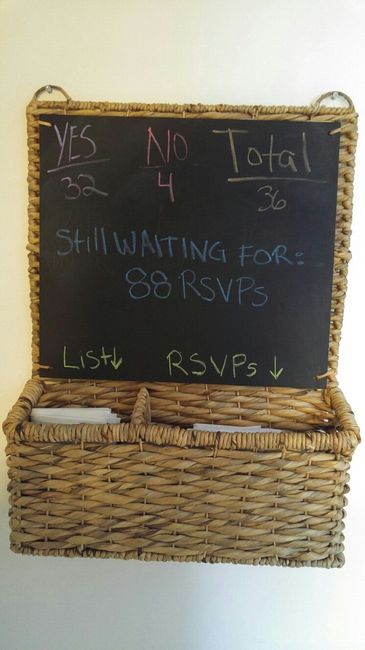 YES NO Total
32 4 36
Still WAITING FOR:
88 RSVPs
List↓ RSVPs ↓